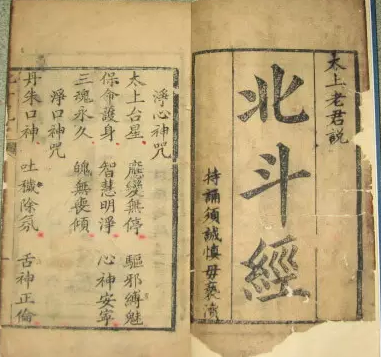 太上老君説
北斗經
持誦須誠慎毋褻瀆
淨心神咒
太上台星 應變無停 驅邪縛魅
保命護身 智慧明淨 心神安寧
三魂永久 魄無喪傾
淨口神咒
丹朱口神 吐穢除氛 舌神正倫